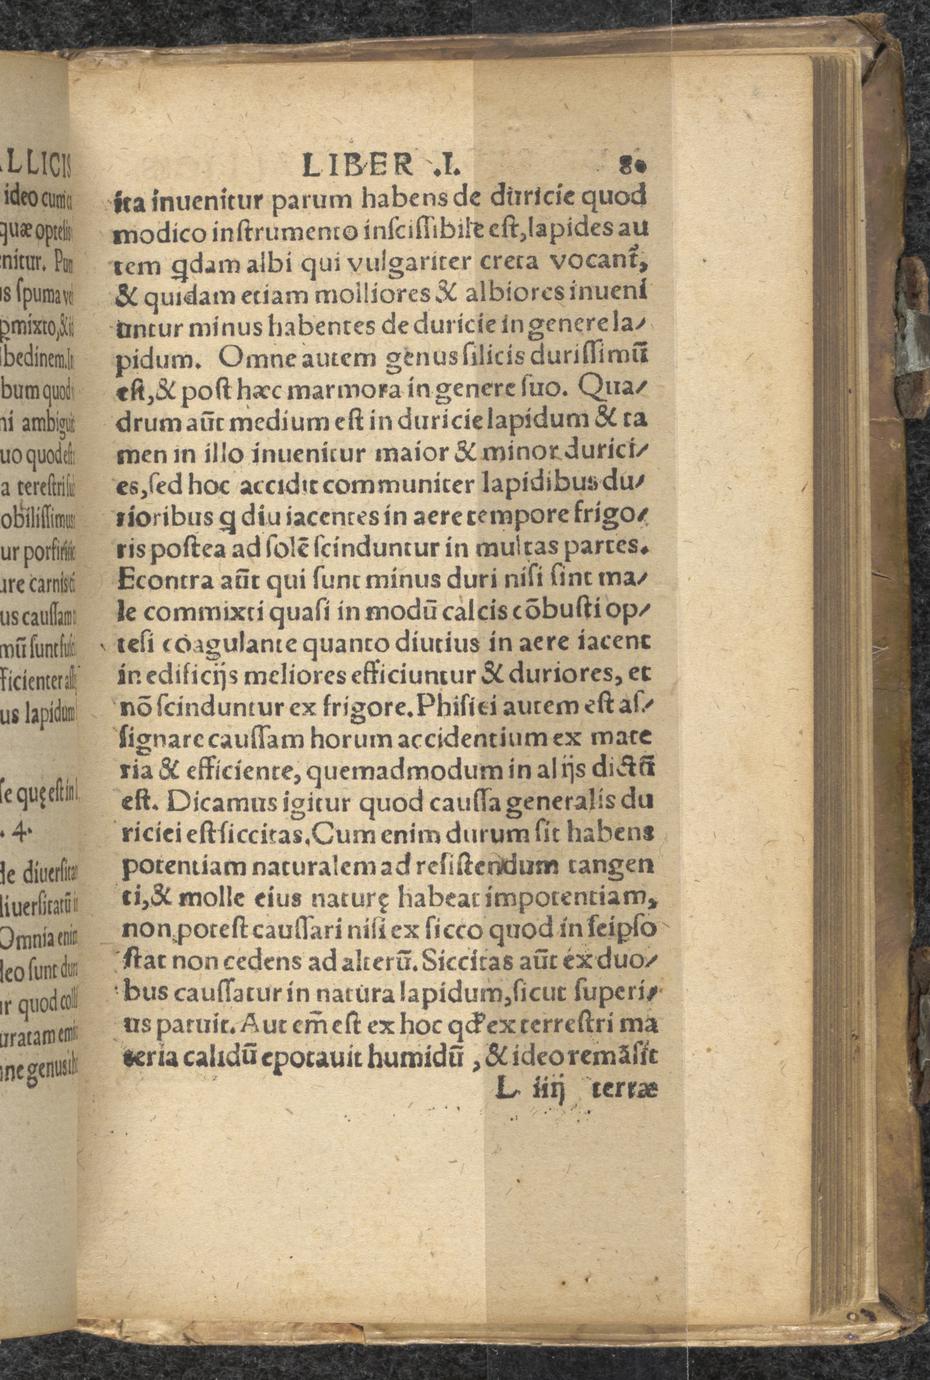 LIBER .I. 80
ita inuenitur parum habens de duricie quod
modico instrumento inscissibile est, lapides au
tem qdam albi qui vulgariter creta vocant̃,
& quidam etiam molliores & albiores inueni
untur minus habentes de duricie in genere la/
pidum. Omne autem genus silicis durissimū
est, & post hæc marmora in genere suo. Qua/
drum aūt medium est in duricie lapidum & ta
men in illo inuenitur maior & minor durici/
es, sed hoc accidit communiter lapidibus du/
rioribus q diu iacentes in aere tempore frigo/
ris postea ad solē scinduntur in multas partes.
Econtra aūt qui sunt minus duri nisi sint ma/
le commixti quasi in modū calcis cōbusti op/
tesi coagulante quanto diutius in aere iacent
in edificijs meliores efficiuntur & duriores, et
nō scinduntur ex frigore. Phisici autem est as/
signare caussam horum accidentium ex mate
ria & efficiente, quemadmodum in alijs dictū
est. Dicamus igitur quod caussa generalis du
riciei est siccitas. Cum enim durum sit habens
potentiam naturalem ad resistendum tangen
ti, & molle eius naturę habeat impotentiam,
non potest caussari nisi ex sicco quod in seipso
stat non cedens ad alterū. Siccitas aūt ex duo/
bus caussatur in natura lapidum, sicut superi/
us patuit. Aut em̄ est ex hoc qđ ex terrestri ma
teria calidū epotauit humidū, & ideo remāsit
L iiij terræ
ALLICIS
quæ
enitur.
bedinem.
bum quod
ni
uo quod
a terestri
ur
ure carnis
us caussam
us lapidum
. 4.
de
Omnia enim
deo sunt
ur quod
nne genus